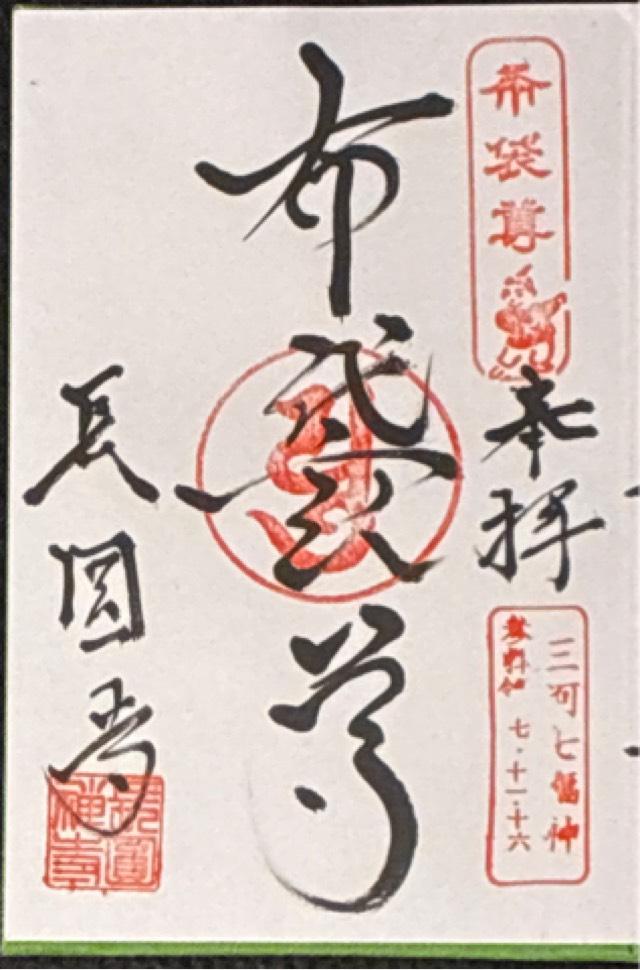 布袋尊
奉拝
三河七福神
七・十一・十六
布袋尊
長圓寺
長圓禅寺